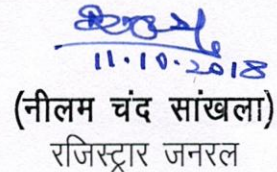 11.10.2018
(नीलम चंद सांखला)
रजिस्ट्रार जनरल